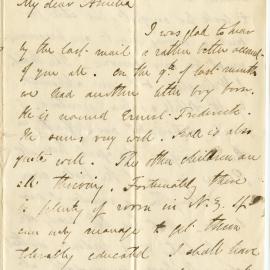 My dear Amelia
I was glad to hear
by the last mail a rather better account
of you all. On the 9th of last month
we had another little boy born.
He is named Ernest Frederick.
He seems very well. Kate is also
quite well. The other children are
all thriving. Fortunately there
is plenty of room in N.Z. if I
can only manage to get them
tolerably educated I shall have